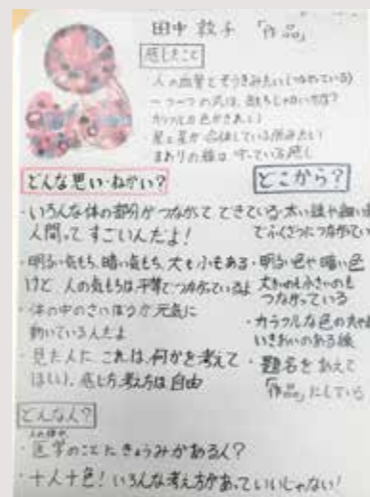 田中 敦子 「作品」
感じたこと
・人の血管とぞうきみたい(つながっている)
一つ一つの丸は、気もちじゃないかな?
カラフルな色がきれい
・星と星が合体している所みたい
まわりの線は
どんな思い・ねがい?
・いろんな体の部分がつながってできている
人間ってすごいんだよ!
・明るい気もち、暗い気もち、大も小もある
けど 人の気もちは平等でつながっているよ
・体の中のさいぼうが元気に
動いているんだよ
・見た人にこれは何かを考えて
ほしい。感じ方、考え方は自由
どこから?
・太い線や細い
でふくざつにつながってい
・明るい色や暗い色
大きいのも小さいのも
つながっている
・カラフルな色の丸や
いきおいのある線
・題名をあえて
「作品」にしている
どんな人?
人の体や
・医学のことにきょうみがある人?
・十人十色!いろんな考え方があっていいじゃない!